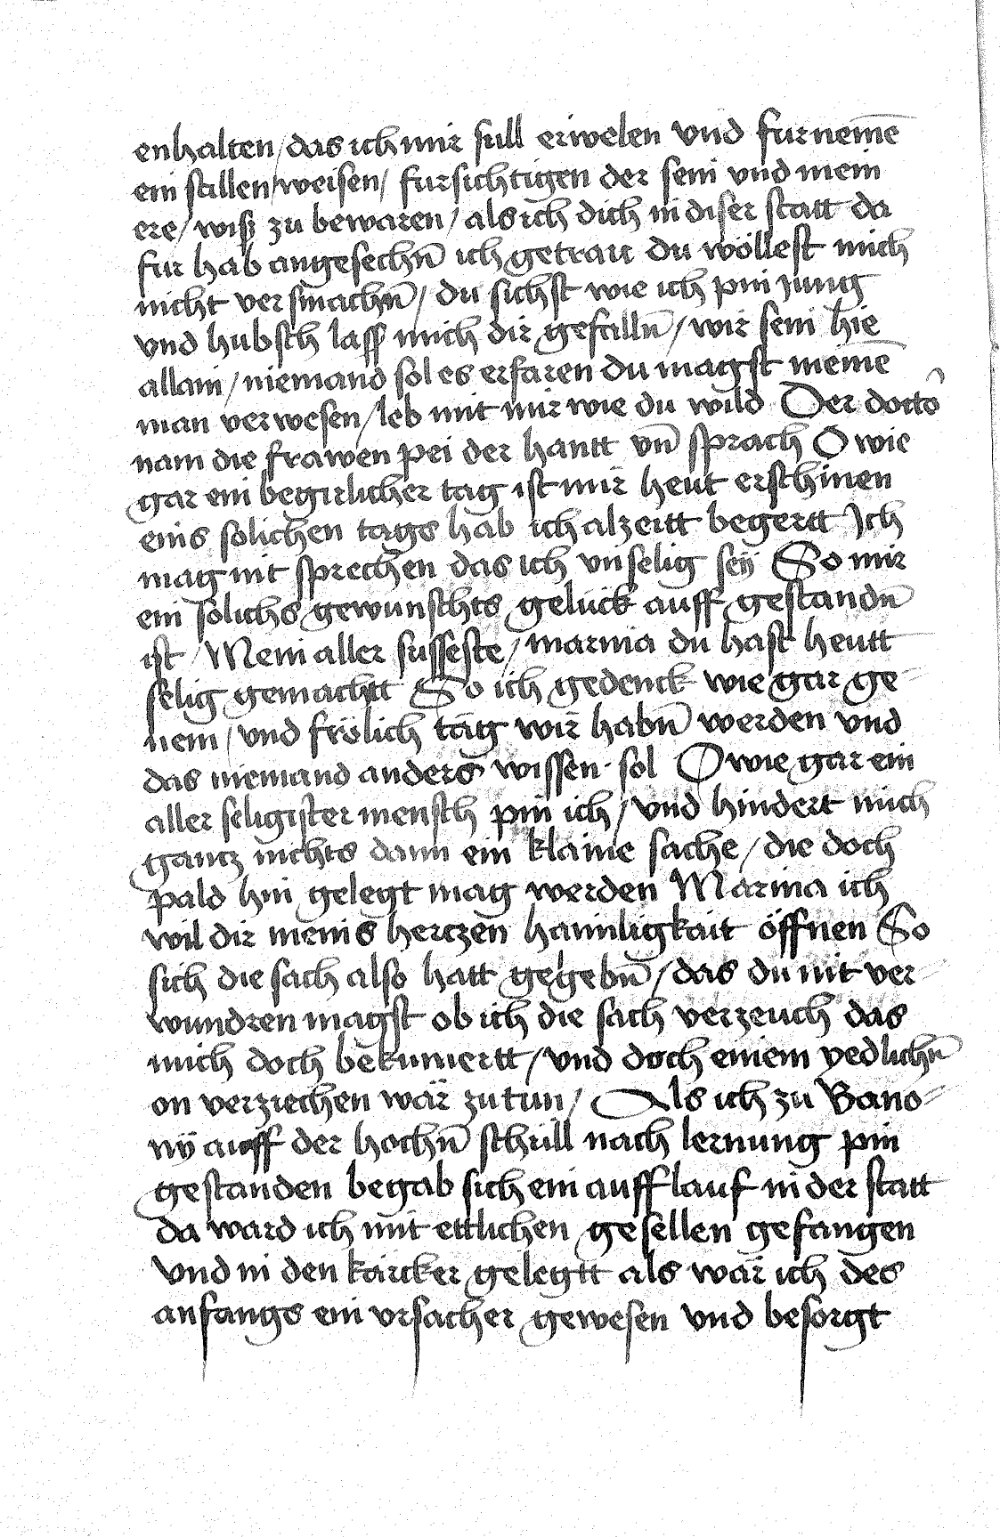 enhalten / das ich mir sull erwelen vnd furneme̅
ein stillen / weisen / fursichtigen der sein vnd mein
ere / wiss zu bewaren / als ich dich in diser statt da
fur hab angesechn̅ ich getraw du wöllest mich
nicht versmachn̅ / du sichst wie ich pin jung
vnd hubsch lass mich dir gefalln̅ / wir sein hie
allain / niemand sol es erfaren du magst meine̅
man verwesen / leb mit mir wie du wild Der docto
nam die frawen pei der hantt vn̅ sprach O wie
gar ein begirlicher tag ist mir heut erschinen
eins solichen tags hab ich alzeitt begertt Ich
mag nit sprechen das ich vnselig seÿ So mir
ein solichs gewunschts gelück auff gestandn̅
ist / Mein aller susseste / marina du hast heutt
selig gemachtt So ich gedenck wie gar ge-
nem / vnd frölich täg wir habn̅ werden vnd
das niemand anders wissen sol O wie gar ein
aller seligister mensch pin ich / vnd hindert mich
gantz nichts dann ein klaine sache / die doch
pald hin gelegt mag werden Marina ich
wil dir meins hertzen haimligkait öffnen So
sich die sach also hatt gegebn̅ / das du nit ver-
wundren magst ob ich die sach verzeuch das
mich doch bekumertt / vnd doch einem yedlichn̅
on verziechen wär zu tun / Als ich zu Bano-
nÿ auff der hochn̅ schull nach lernung pin
gestanden begab sich ein aufflauf in der statt
da ward ich mit ettlichen gesellen gefangen
vnd in den kärcker gelegtt als wär ich des
anfangs ein vrsacher gewesen vnd besorgt